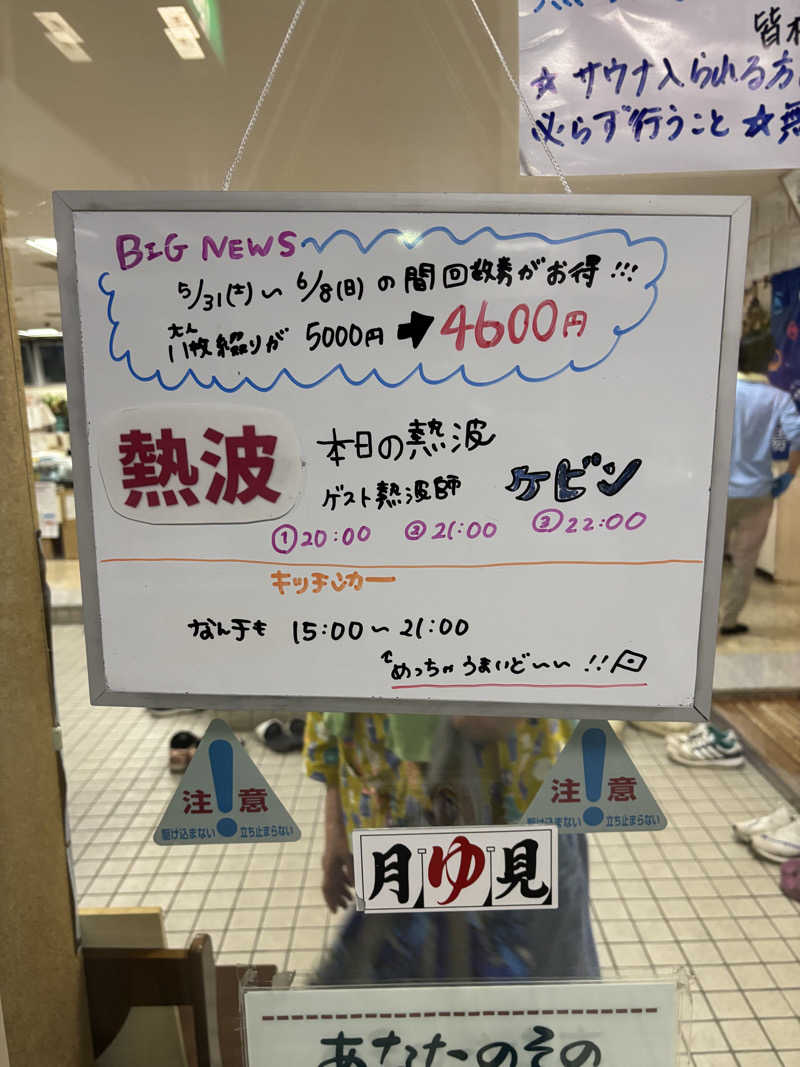 皆
☆サウナ入られる方
必らず行うこと☆無
BIG NEWS
5/31(土)〜6/8(日)の間回数券がお得!!!
大人
11枚綴りが 5000円➡4600円
熱波
本日の熱波
ゲスト熱波師 ケビン
①20:00 ②21:00 ③22:00
キッチンカー
なん手も 15:00〜21:00
めっちゃうまいどーい!!
注!意
駆け込まない 立ち止まらない
注!意
駆け込まない 立ち止まらない
月ゆ見
あなたのその